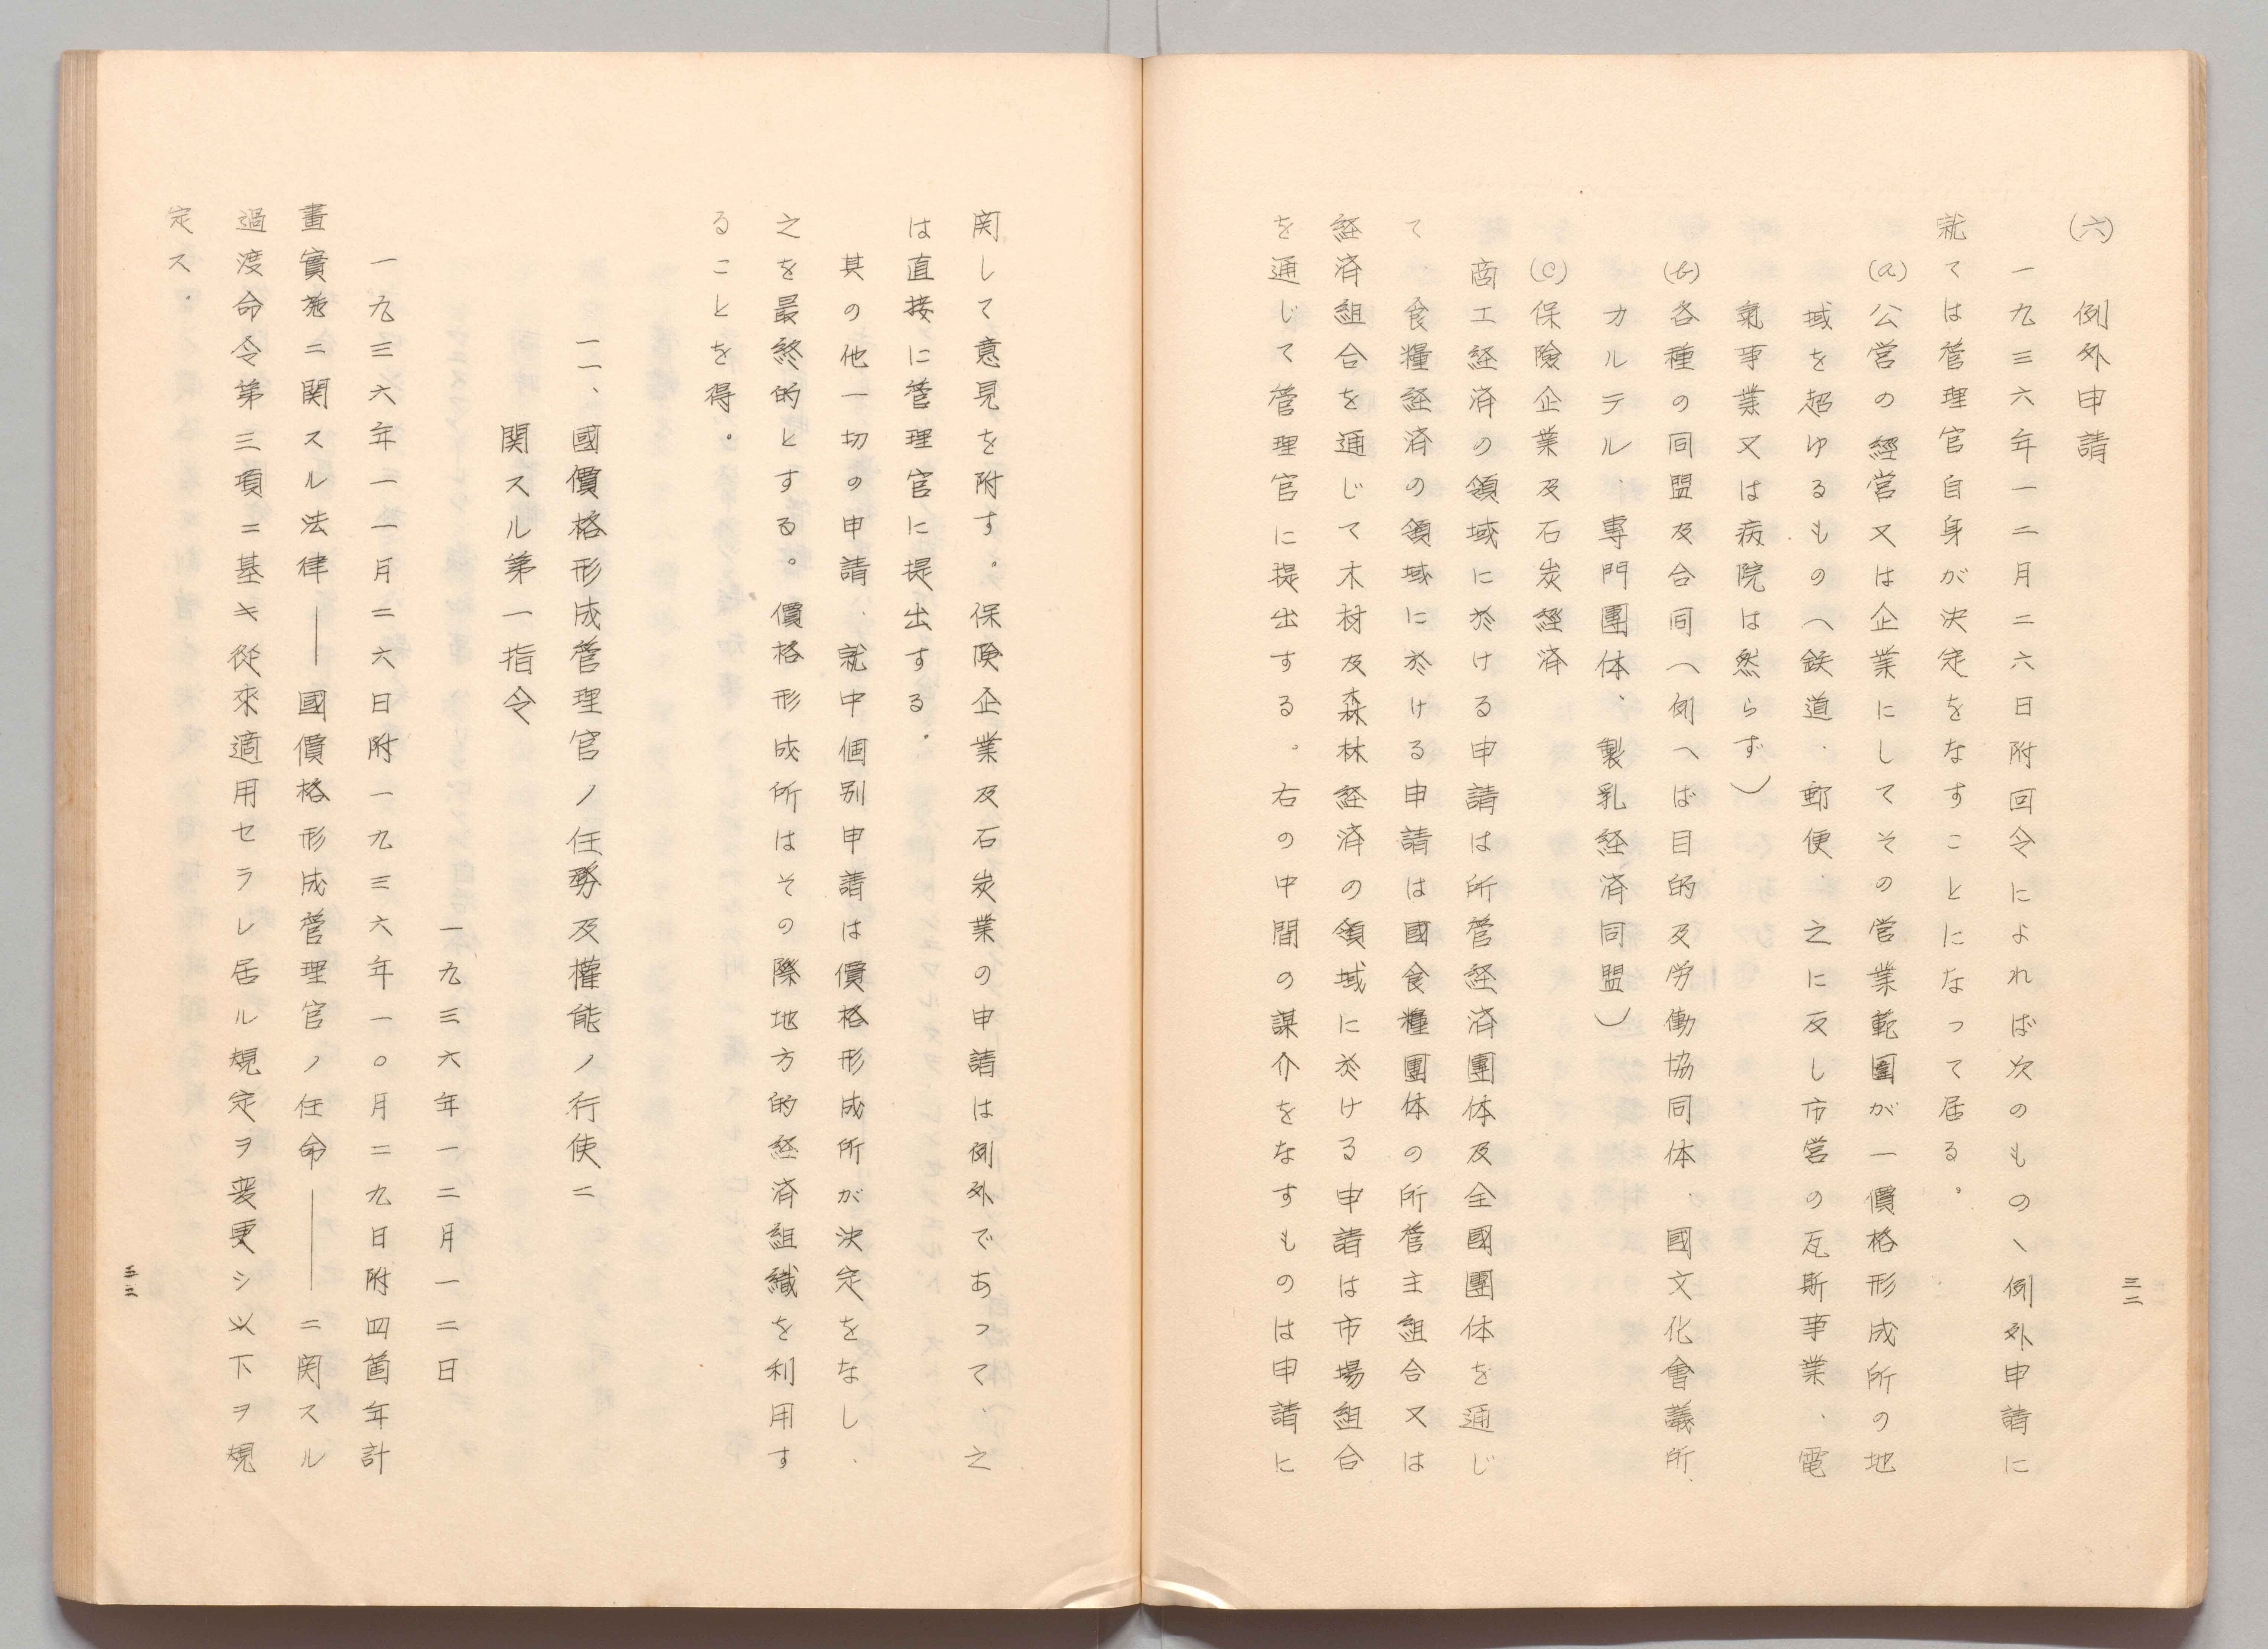 三二
(六)　例外申請
一九三六年一二月二六日附回令によれば次のもの、例外申請に
就ては管理官自身が決定をなすことになって居る。
(a)公営の經営又は企業にしてその営業範圍が一價格形成所の地
域を超ゆるもの(鉄道、郵便、之に反し市営の瓦斯事業、電
氣事業又は病院は然らず)
(b)各種の同盟及合同(例へば目的及労働協同体、國文化會議所、
カルテル、専門團体、製乳経済同盟)
(c)保險企業及石炭經済
商工経済の領域に於ける申請は所管経済團体及全國團体を通じ
て、食糧経済の領域に於ける申請は國食糧團体の所管主組合又は
経済組合を通じて木材及森林経済の領域に於ける申請は市場組合
を通じて管理官に提出する。右の中間の謀介をなすものは申請に
関して意見を附す。保険企業及石炭業の申請は例外であって、之
は直接に管理官に提出する。
其の他一切の申請、就中個別申請は價格形成所が決定をなし、
之を最終的とする。價格形成所はその際地方的経済組織を利用す
ることを得。
一一、國價格形成管理官ノ任務及權能ノ行使ニ
関スル第一指令
一九三六年一二月一二日
一九三六年一一月二六日附一九三六年一〇月二九日附四箇年計
畫實施ニ関スル法律――國價格形成管理官ノ任命――ニ関スル
過渡命令第三項ニ基キ從來適用セラレ居ル規定ヲ変更シ以下ヲ規
定ス.
三三